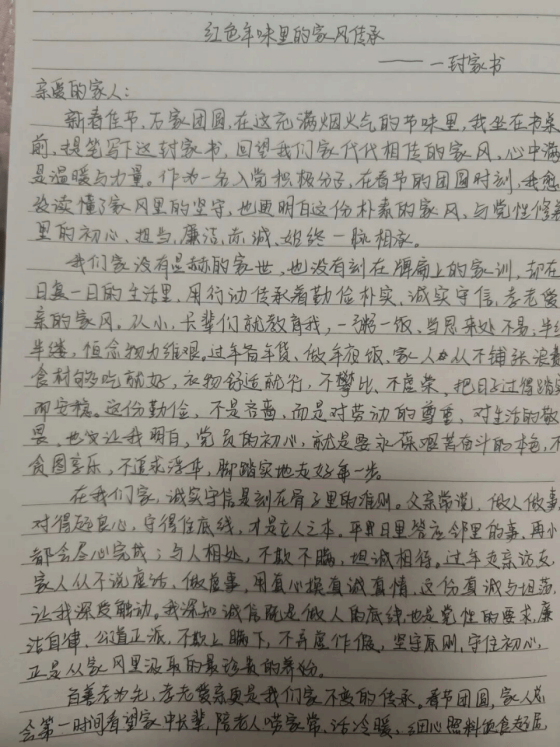 红色年味里的家风传承
——一封家书
亲爱的家人：
新春佳节，万家团圆，在这充满烟火气的节味里，我坐在书桌
前，提笔写下这封家书，回望我们家代代相传的家风，心中满
是温暖与力量。作为一名入党积极分子，在春节的团圆时刻，我想
读懂了家风里的坚守，也更明白这份朴素的家风，与党性修养
里的初心、担当、廉洁、赤诚、始终一脉相承。
我们家没有显赫的家世，也没有刻在牌扁上的家训，却在
日复一日的生活里，用行动传承着勤俭朴实、诚实守信、孝老爱
亲的家风。从小，长辈们就教育我，一粥一饭，当思来处不易，半丝
半缕，恒念物力维艰。过年备年货，做年夜饭，家人从不铺张浪费
食材够吃就好，衣物舒适就行，不攀比、不虚荣，把日子过得踏实
而安稳。这份勤俭，不是吝啬，而是对劳动的尊重，对生活的敬
畏，也让我明白，党员的初心，就是要永葆艰苦奋斗的本色，不
贪图享乐，不追求浮华，脚踏实地走好每一步。
在我们家，诚实守信是刻在骨子里的准则。父亲常说，做人做事
对得起良心，守得住底线，才是立人之本。平日里答应邻里的事，再小
都会尽心完成；与人相处，不欺不瞒，坦诚相待。过年走亲访友
家人从不说虚话，做虚事，用真心换真诚真情，这份真诚与坦荡
让我深受触动。我深知诚信既是做人的底线，也是党性的要求，廉
洁自律、公道正派，不欺上瞒下，不弄虚作假，坚守原则，守住初心，
正是从家风里汲取的最珍贵的养份。
百善孝为先，孝老爱亲更是我们家不变的传承。春节团圆，家人总
会第一时间看望家中长辈，陪老人唠家常，话冷暖，细心照料饮食起居，